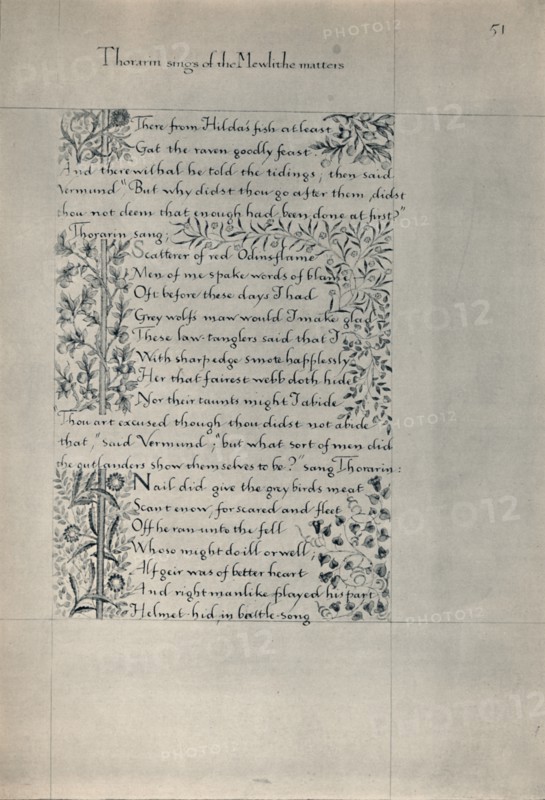 51
Thorarin sings of the Mewlithe matters
There from Hilda's fish at least
Gat the raven goodly feast.
And therewithal he told the tidings, then said
Vermund "But why didst thou go after them, didst
thou not deem that enough had been done at first?"
Thorarin sang:
Scatterer of red Odinsflame
Men of me spake words of blame
Oft before these days I had
Grey wolfs maw would I make glad
These law-tanglers said that I
With sharp edge smote happlessly
Her that fairest webb doth hide
Nor their taunts might I abide
Thou art excused though thou didst not abide
that," said Vermund; "but what sort of men did
the outlanders show themselves to be?" sang Thorarin:
Nail did give the grey birds meat
Scant enow, for scared and fleet
Off he ran unto the fell
Whoso might do ill or well;
Alfgeir was of better heart
And right manlike played his part
Helmet-hid, in battle-song
PHOTO12